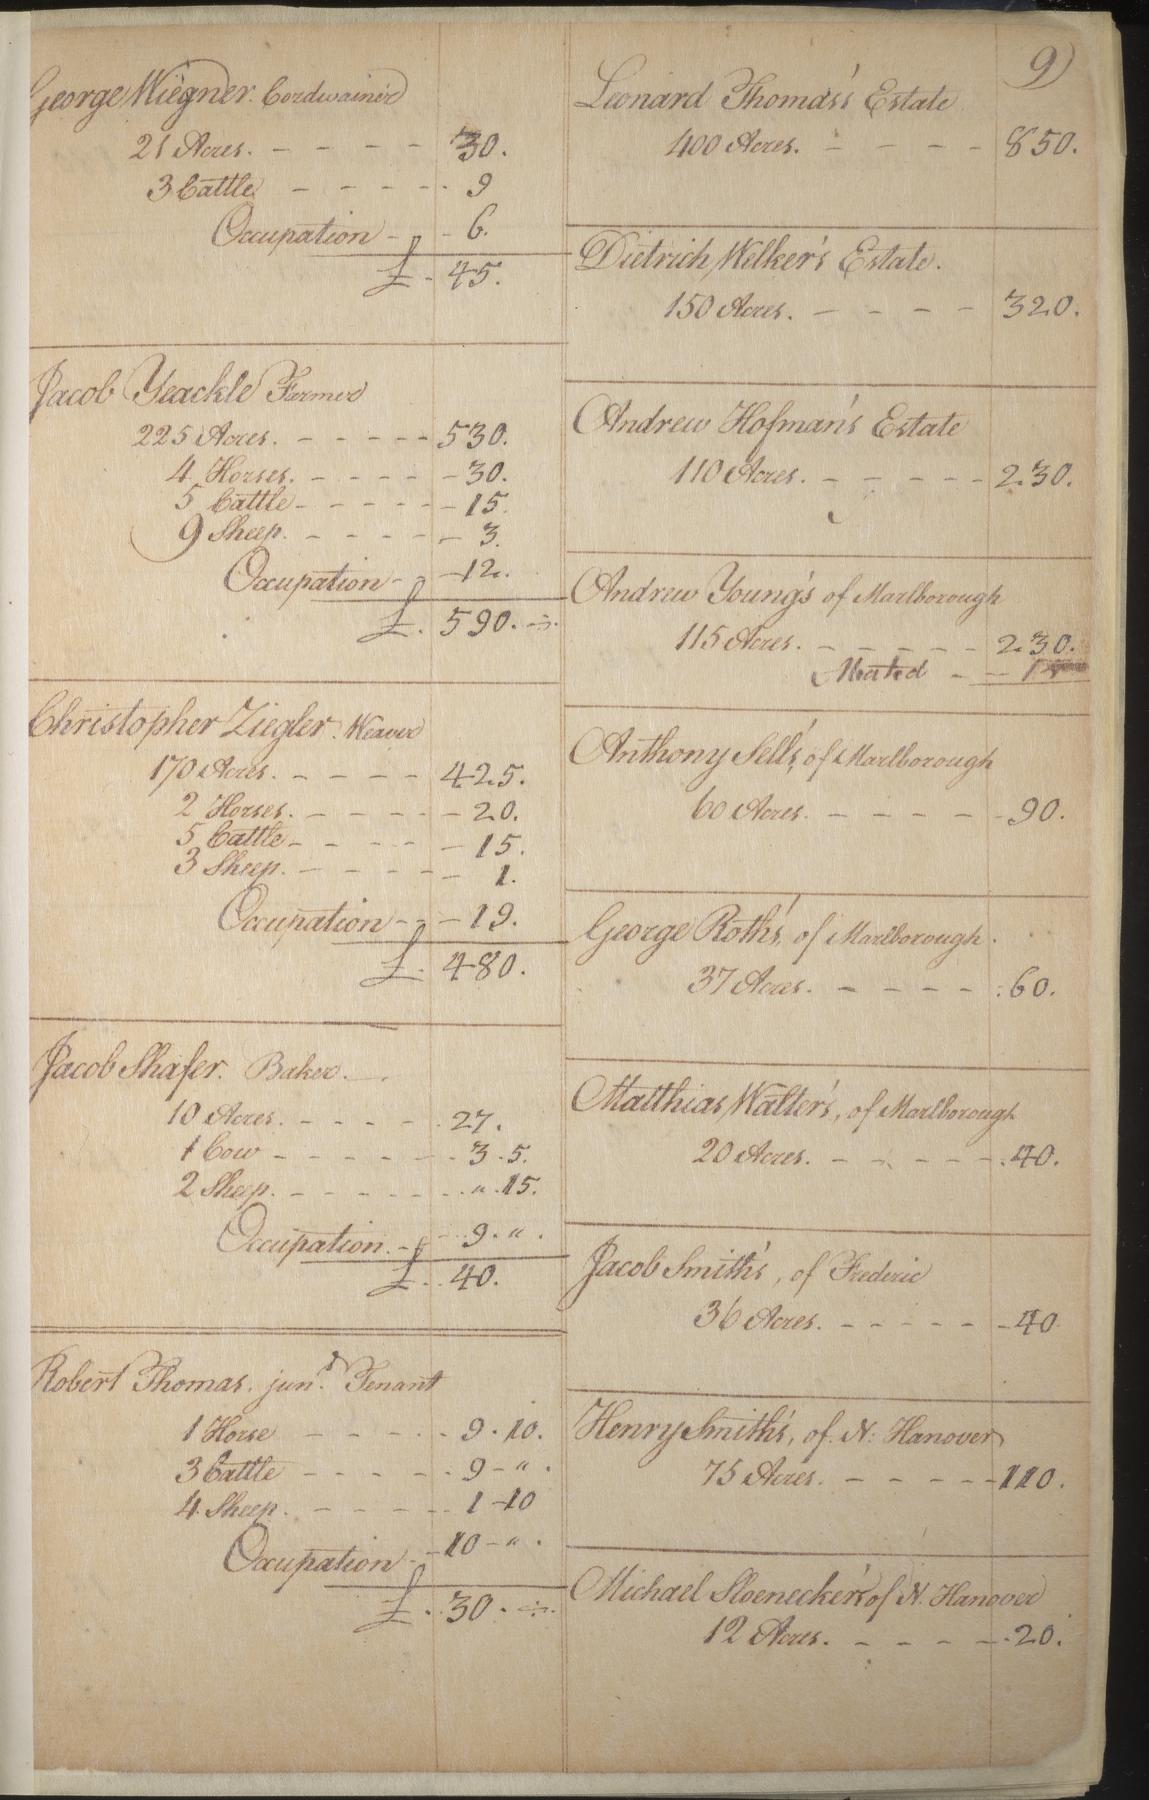 George Wiegner. Cordwainer
21 Acres. - - - - - 30.
3 Cattle - - - - - 9
Occupation - - 6.
£. 45.
Jacob Yeackle Farmer
225 Acres. - - - - - 530.
4 Horses. - - - - - 30.
5 Cattle - - - - - 15.
9 Sheep. - - - - - 3.
Occupation - - 12.
£. 590.
Christopher Ziegler. Weaver
170 Acres. - - - - 425.
2 Horses. - - - - - 20.
5 Cattle - - - - - 15.
3 Sheep. - - - - - 1.
Occupation - - - 19.
£. 480.
Jacob Shafer. Baker.
10 Acres. - - - - - 27.
1 Cow - - - - - - 3. 5.
2 Sheep. - - - - - - " . 15.
Occupation. - - 9. " .
£. 40.
Robert Thomas. junr. Tenant
1 Horse - - - - - 9. 10.
3 Cattle - - - - - 9 - " .
4 Sheep. - - - - - 1 - 10
Occupation - - 10 - " .
£. 30.
9)
Leonard Thomas's Estate
400 Acres. - - - - 850.
Dietrich Welker's Estate.
150 Acres. - - - - 320.
Andrew Hofman's Estate
110 Acres. - - - - - 230.
Andrew Young's of Marlborough
115 Acres. - - - - - 230.
Abated - -
Anthony Sell's, of Marlborough
60 Acres. - - - - - 90.
George Roth's, of Marlborough.
37 Acres. - - - - 60.
Matthias Walter's, of Marlborough
20 Acres. - - - - - 40.
Jacob Smith's, of Frederic
36 Acres. - - - - - 40
Henry Smith's, of N: Hanover
75 Acres. - - - - - 110.
Michael Sloenecker's of N. Hanover
12 Acres. - - - - - 20.